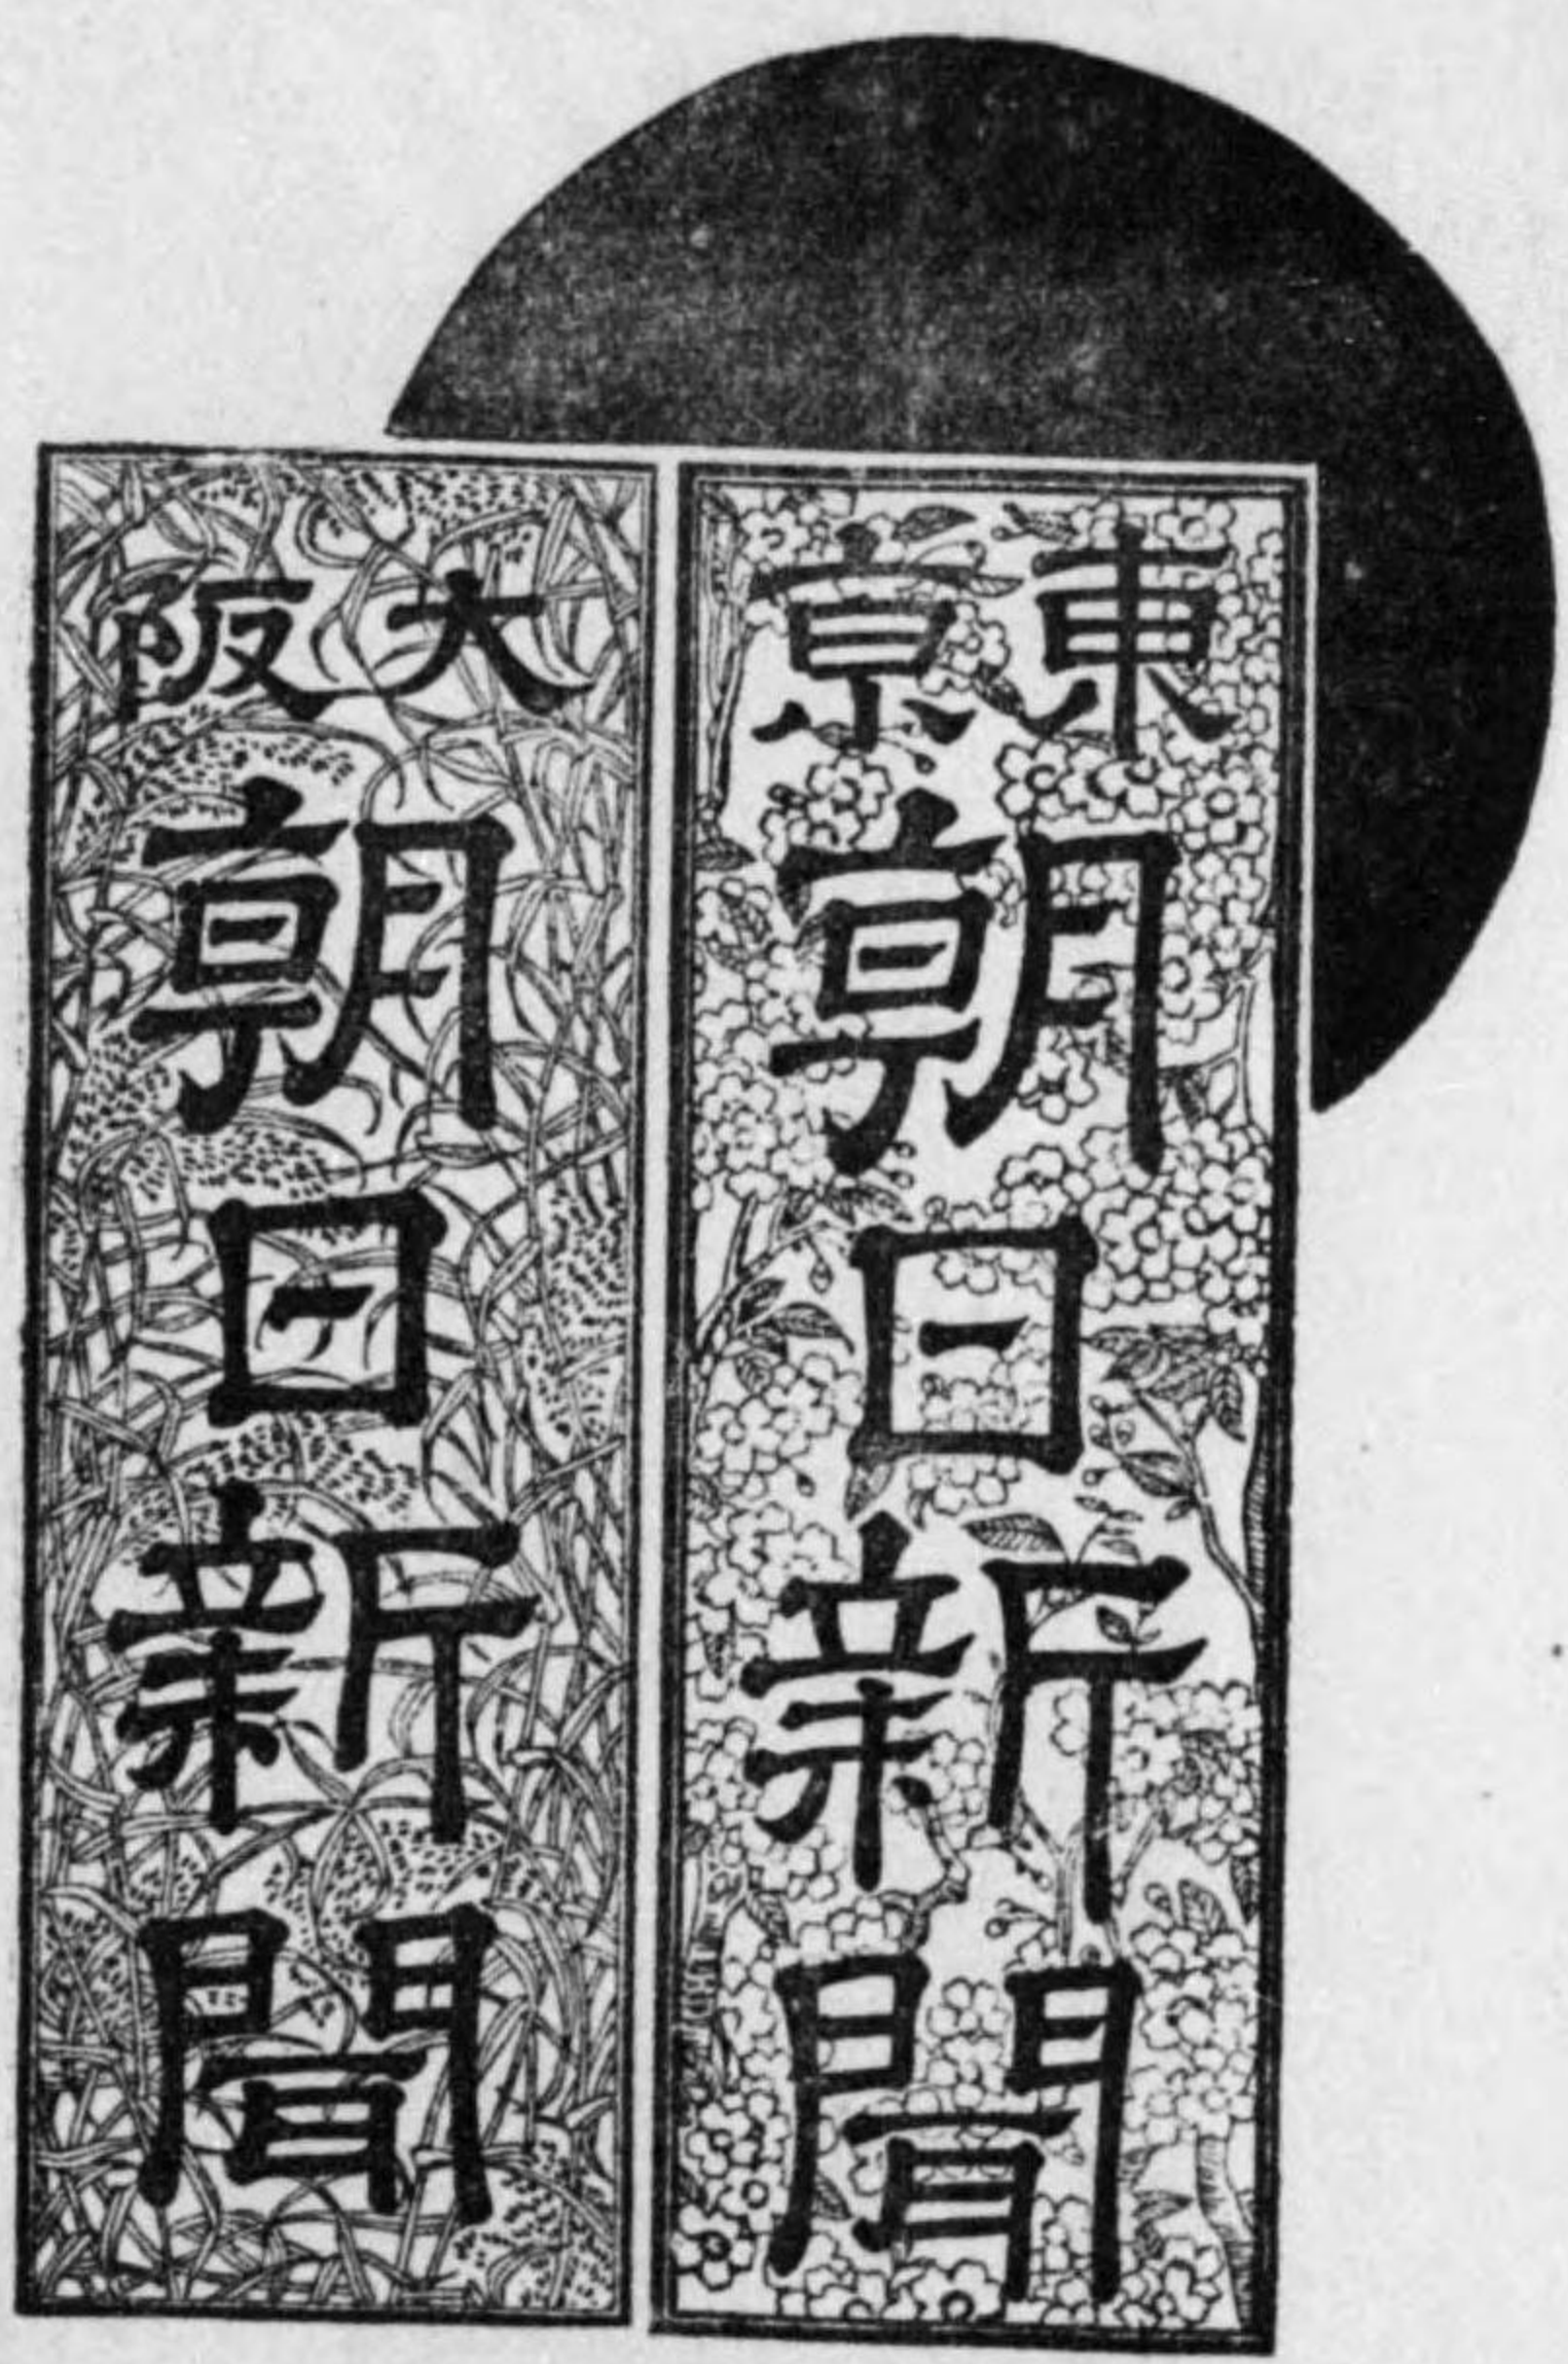 東京
朝日新聞
大阪
朝日新聞